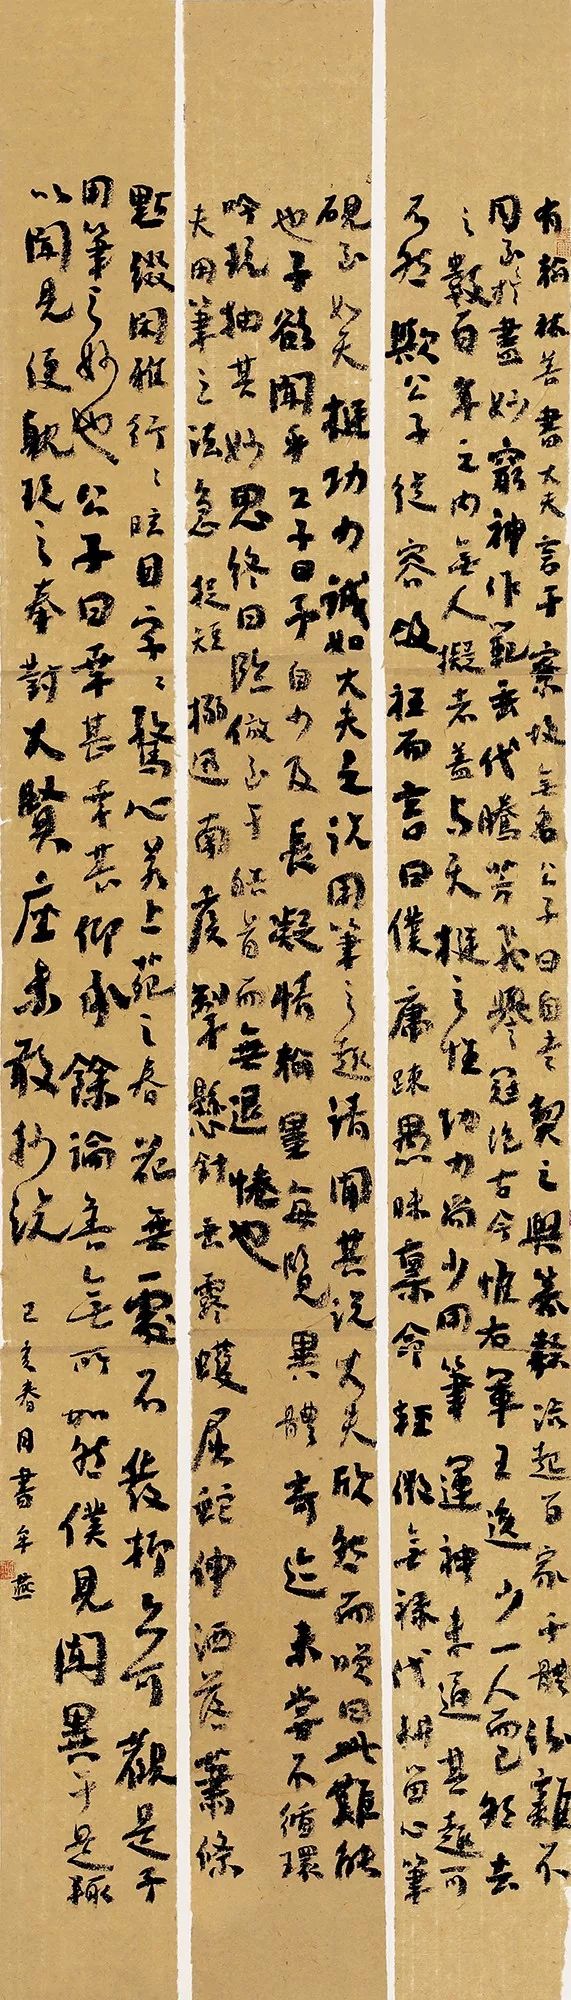 有翰林善書大夫言于寮故無名公子曰自書契之興篆隸滋起百家千體紛雜不
同至於盡妙窮神作範垂代騰芳飛譽冠絕古今惟右軍王逸少一人而已然去
之數百年之內無人擬者蓋與天挺之性功力尚少用筆運神未通其趣可
不然歟公子從容斂衽而言曰僕庸疎愚昧稟命輕微無祿代耕留心筆
硯至如天挺功力誠如大夫之說用筆之趣請聞其說大夫欣然而嘆曰此難能
也子欲聞乎公子曰予自少及長凝情翰墨每覽異體奇迹未嘗不循環
吟玩抽其妙思終日臨倣至于皓首而無退惓也
夫用筆之法急捉短搦迅南疾掣懸針垂露蠖屈蛇伸洒落蕭條
點綴閑雅行〻眩目字〻驚心若上苑之春花無處不發抑亦可觀是予
用筆之妙也公子曰幸甚幸甚仰承餘論善無所加然僕見聞異于是輒
以聞見便躭玩之奉對大賢座未敢抄說
己亥春月書牟燕